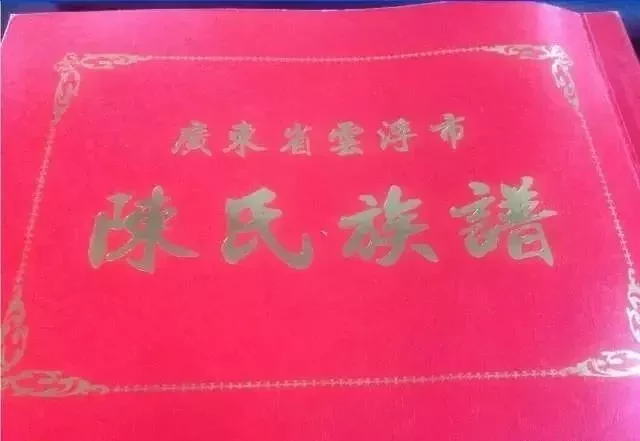 廣東省雲浮市
陳氏族譜